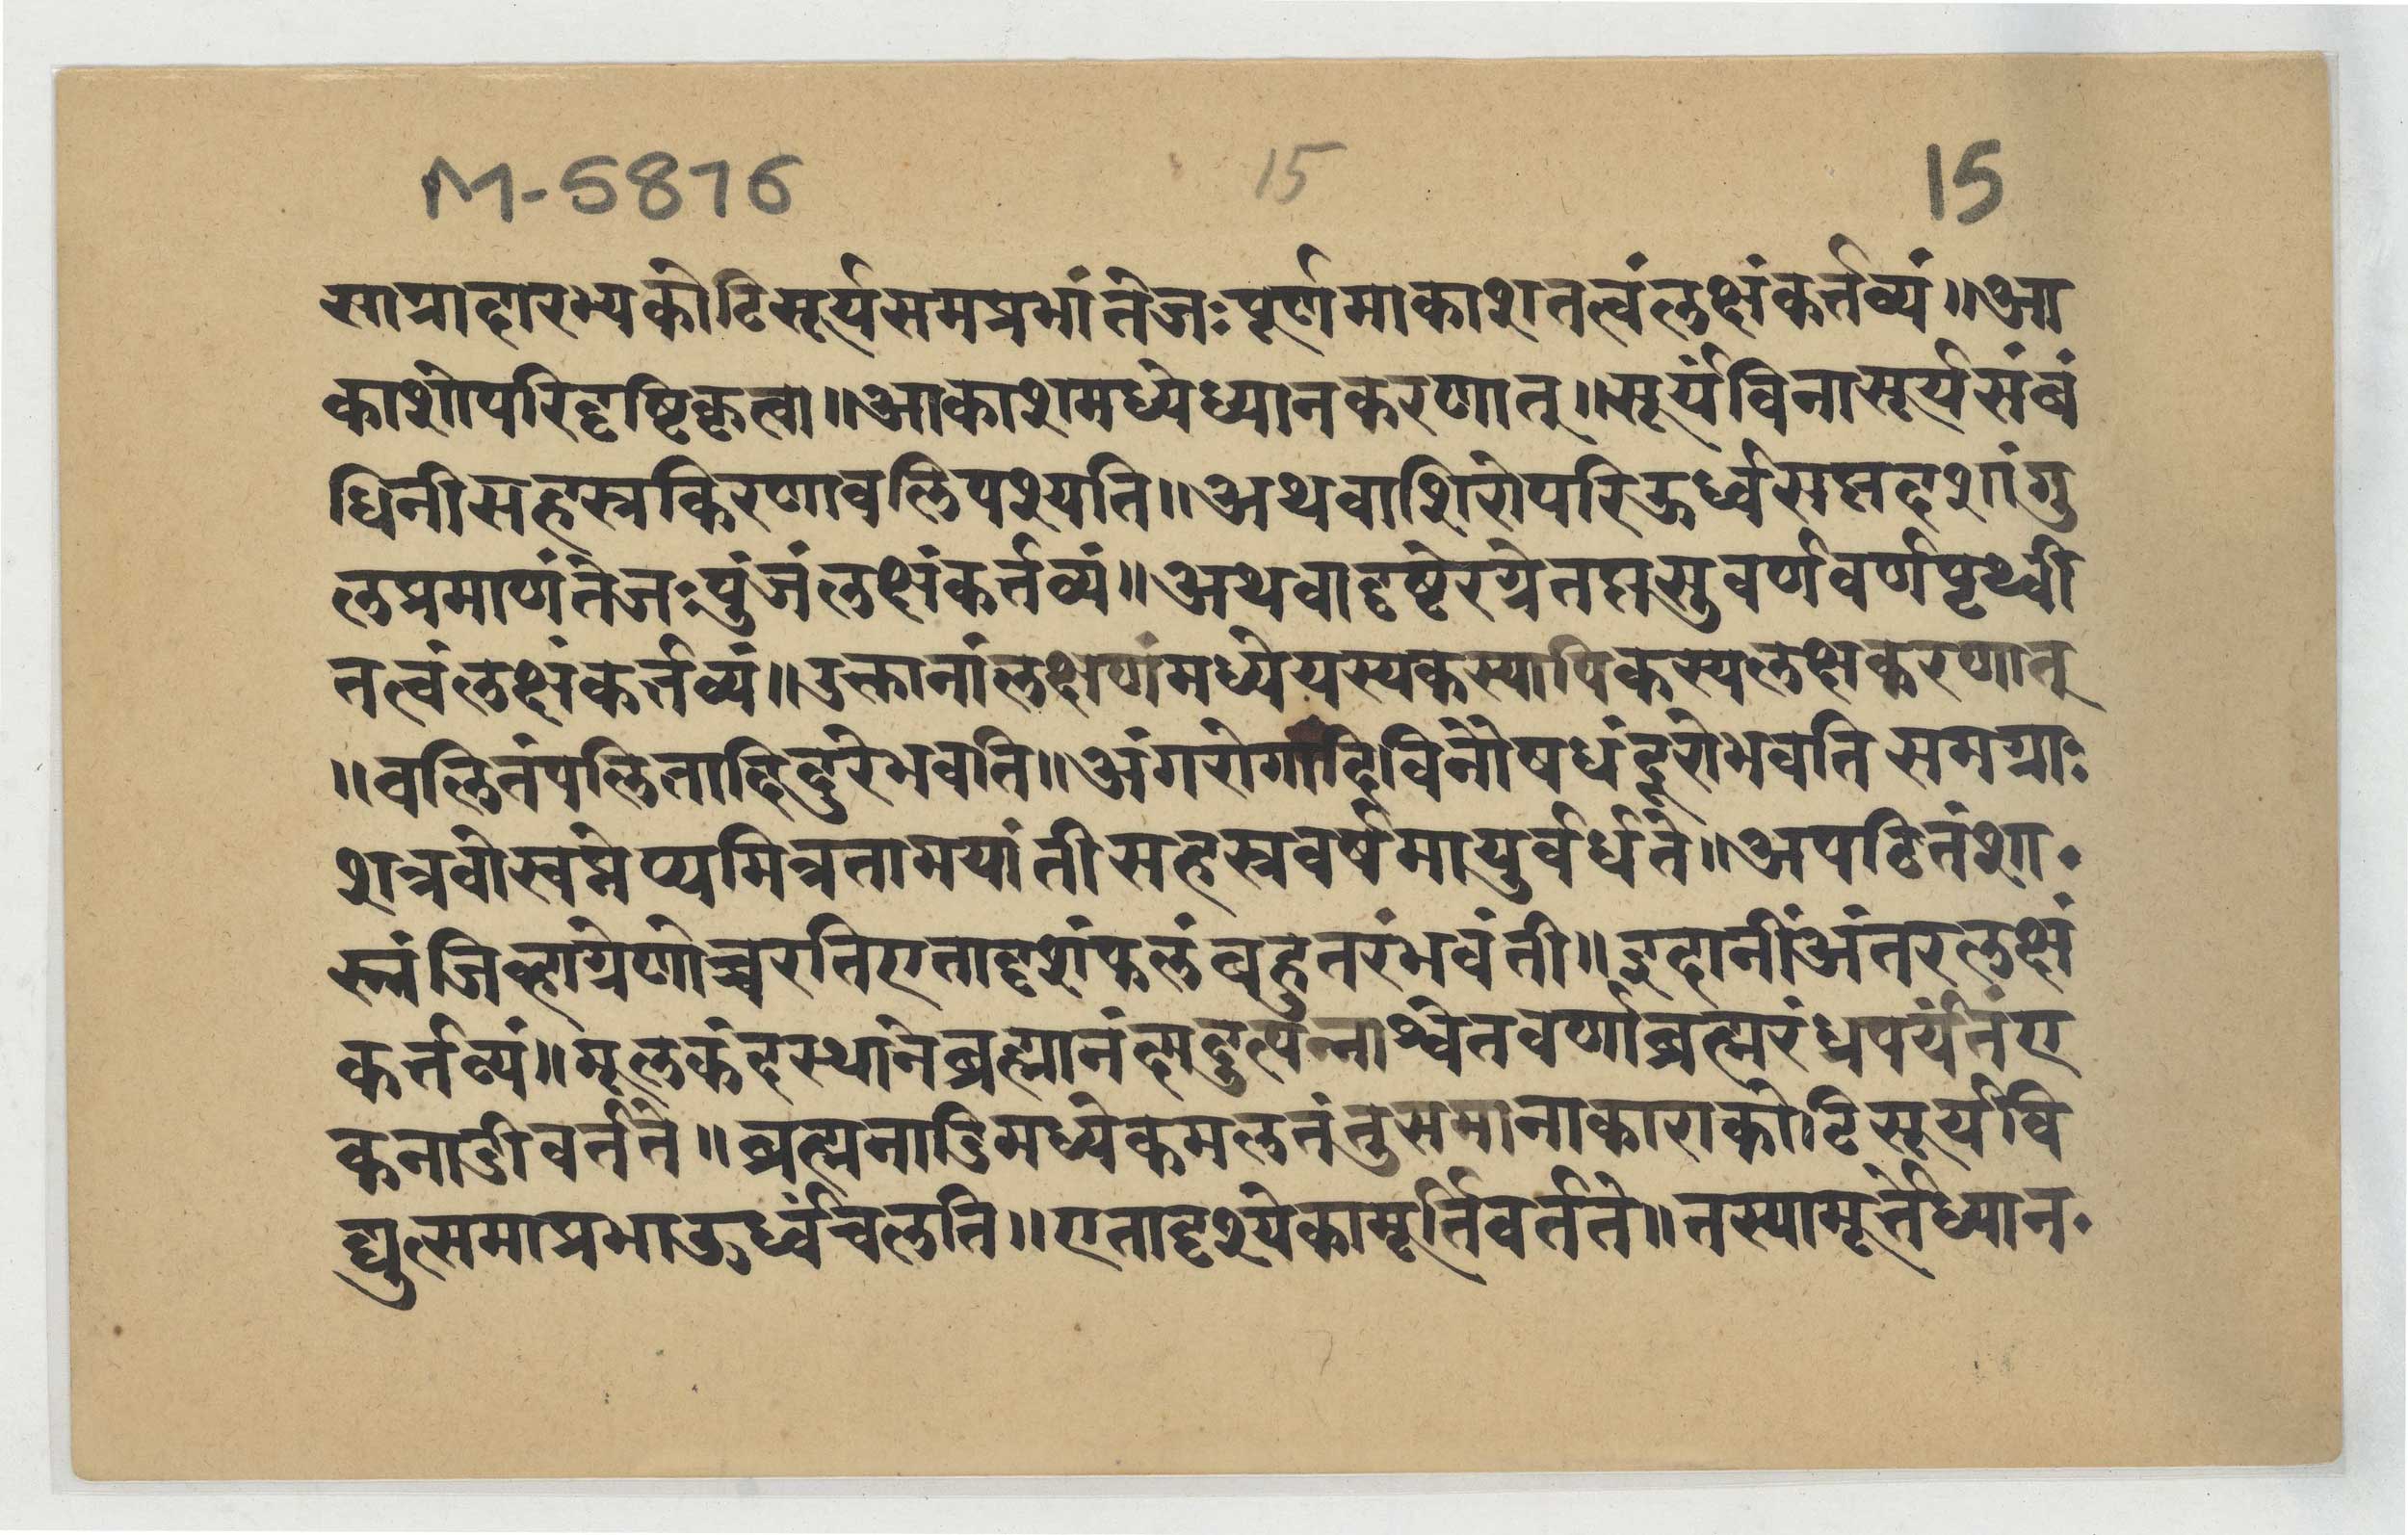 M-5876 15 15
साग्रादारभ्यकोटिसूर्यसमप्रभांतेजःपूर्णमाकाशतत्वंलक्षंकर्त्तव्यं॥आ
काशोपरिदृष्टिकृत्वा॥आकाशमध्येध्यानकरणात्॥सूर्यंविनासूर्यसंबं
धिनीसहस्त्रकिरणावलिपश्यति॥अथवाशिरोपरिऊर्ध्वसप्तदशांगु
लप्रमाणंतेजःपुंजंलक्षंकर्त्तव्यं॥अथवादृष्टेरग्रेतप्तसुवर्णवर्णपृथ्वी
तत्वंलक्षंकर्त्तव्यं॥उक्तानांलक्षणंमध्येयस्यकस्यापिकस्यलक्षकरणात्
॥वलितंपलितादिदुरेभवति॥अंगरोगादिविनौषधंदूरोभवति समग्राः
शत्रवोस्वप्नेप्यमित्रतामयांतीसहस्त्रवर्षमायुर्वर्धते॥अपठितंशा॰
स्त्रंजिव्हाग्रेणोच्चरतिएतादृशंफलंबहुतरंभवंती॥इदानींअंतरलक्षं
कर्त्तव्यं॥मूलकंदस्थानेब्रह्मानंदादुत्पन्नाश्वेतवर्णाब्रह्मरंध्रपर्यंतंए
कनाडीवर्तते॥ब्रह्मनाडिमध्येकमलतंतुसमानाकाराकोटिसूर्यवि
द्युत्समाप्रभाऊर्ध्वंचलति॥एतादृश्येकामूर्तिवर्तते॥तस्यामूर्तेध्यान॰